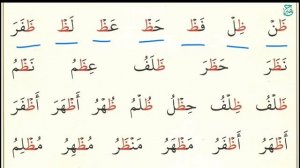 ظَنْ ظِلْ فَظْ حَظْ عَظْ لَظْ ظَفَرَ
نَظَرَ حَظَرَ ظَلَفُ عِظَمُ نَظْمُ
ظَلْفُ ظِلْفُ حِظْلُ ظُلْمُ ظُهْرُ أَظْهَرَ أَظْفَرَ
أَظْهَرُ أَظْفَرُ مَظْهَرُ مَنْظَرُ مُظْهِرُ مُظْلِمُ